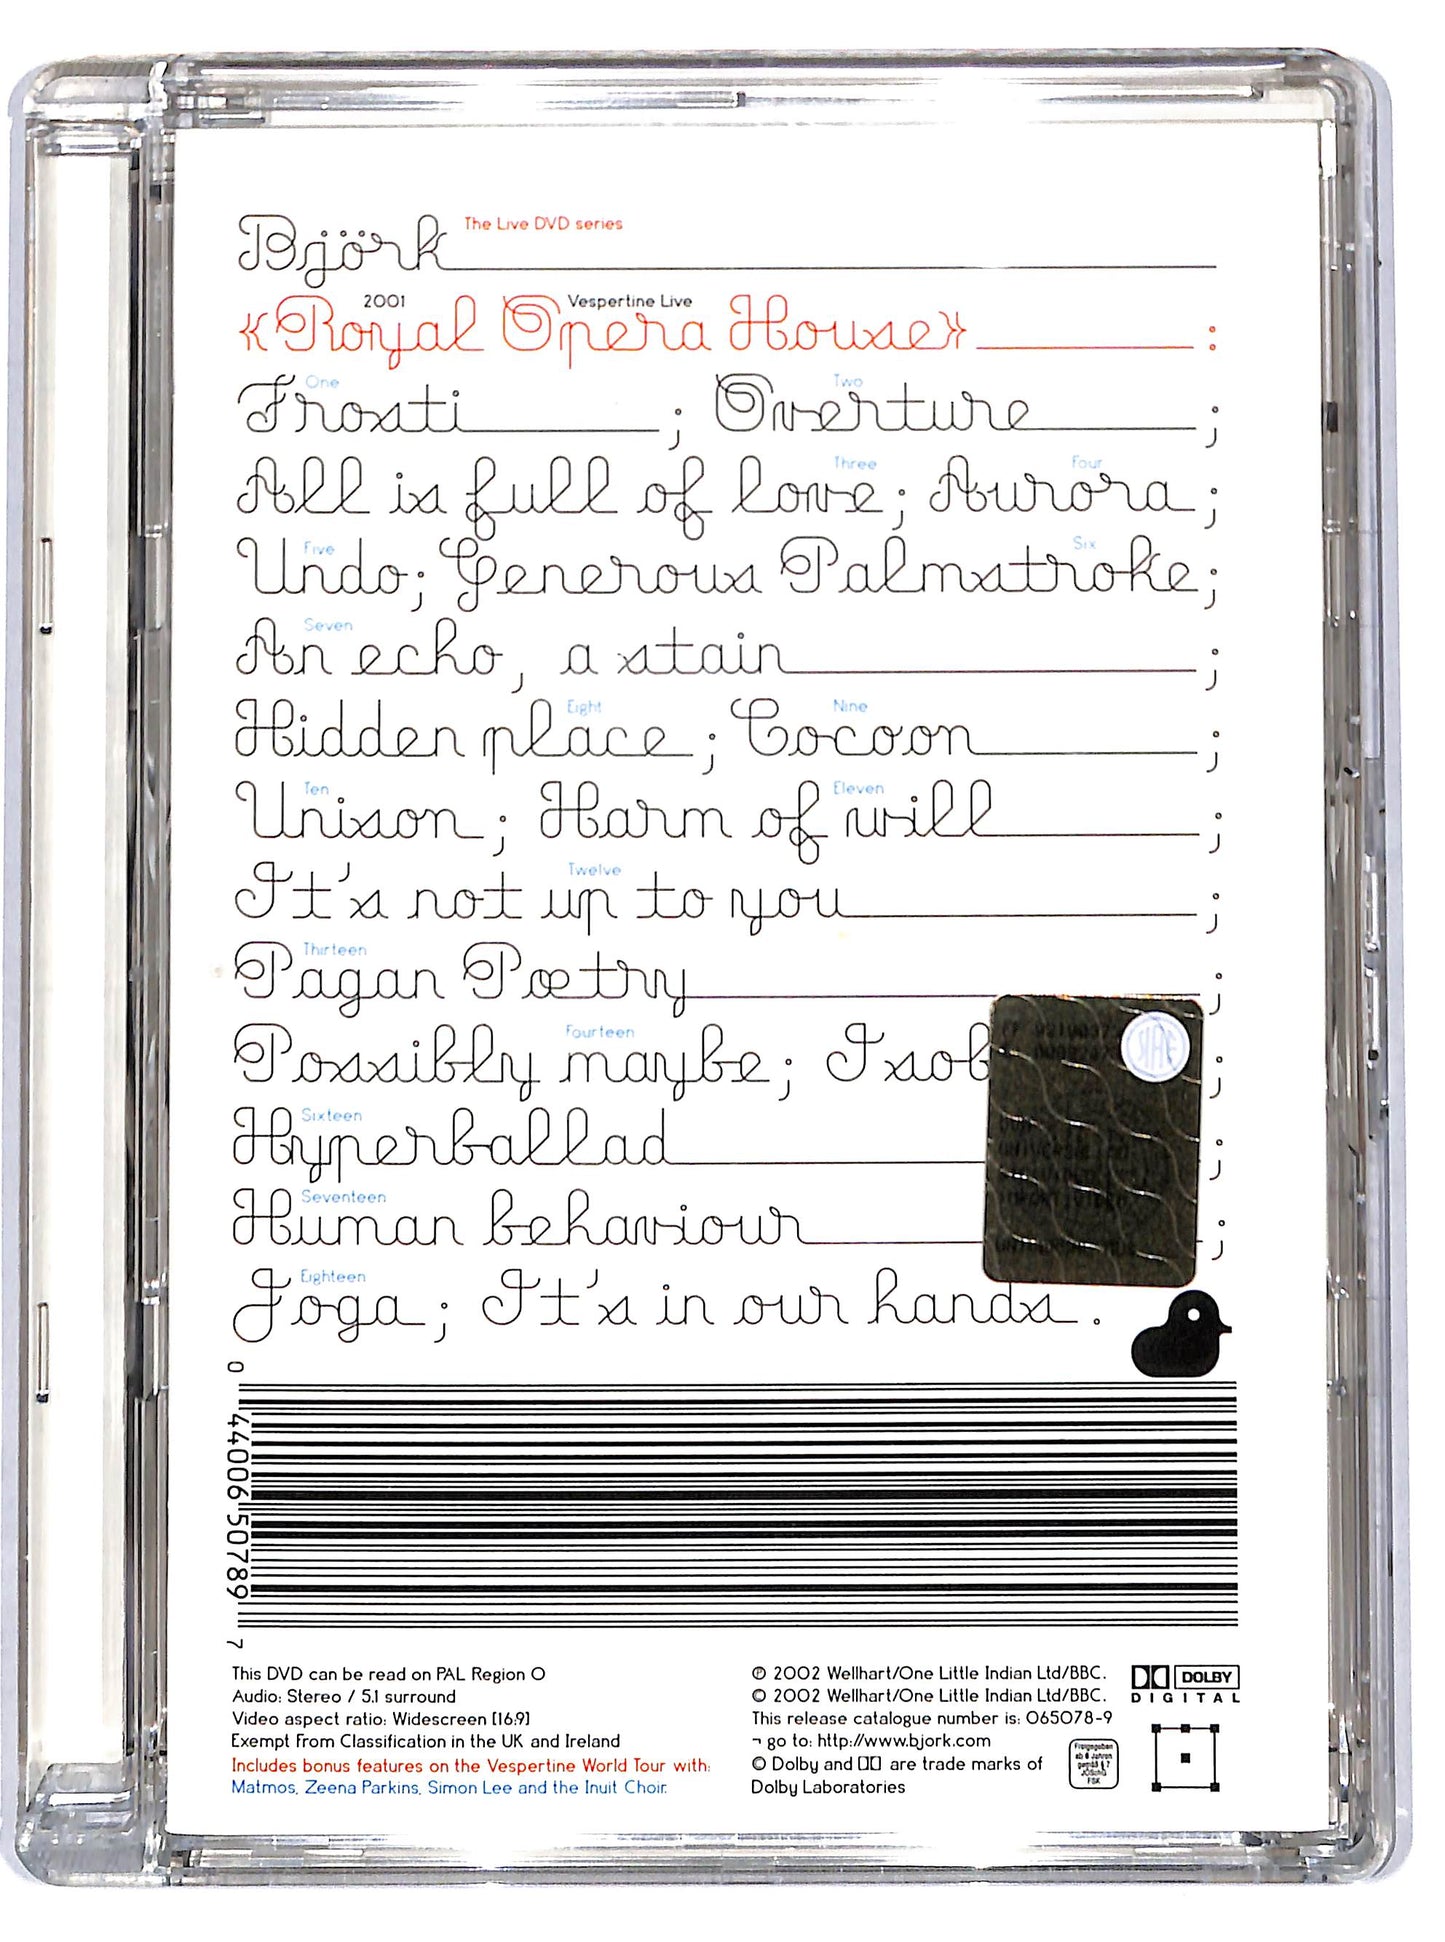 Björk The Live DVD series
2001 Vespertine Live
«Royal Opera House» :
One Two
Frosti ; Overture ;
Three Four
All is full of love; Aurora ;
Five Six
Undo; Generous Palmstroke;
Seven
An echo, a stain ;
Eight Nine
Hidden place ; Cocoon ;
Ten Eleven
Unison ; Harm of will ;
Twelve
It's not up to you ;
Thirteen
Pagan Poetry ;
Fourteen
Possibly maybe; Isob ;
Sixteen
Hyperballad ;
Seventeen
Human behaviour ;
Eighteen
Joga ; It's in our hands .
0 44006 50789 7
This DVD can be read on PAL Region 0
Audio: Stereo / 5.1 surround
Video aspect ratio: Widescreen [16:9]
Exempt From Classification in the UK and Ireland
Includes bonus features on the Vespertine World Tour with:
Matmos, Zeena Parkins, Simon Lee and the Inuit Choir.
℗ 2002 Wellhart/One Little Indian Ltd/BBC.
© 2002 Wellhart/One Little Indian Ltd/BBC.
This release catalogue number is: 065078-9
¬ go to: http://www.bjork.com
© Dolby and are trade marks of
Dolby Laboratories
DOLBY
DIGITAL
Freigegeben
ab 6 Jahren
gemäß § 7
JÖSchG
FSK